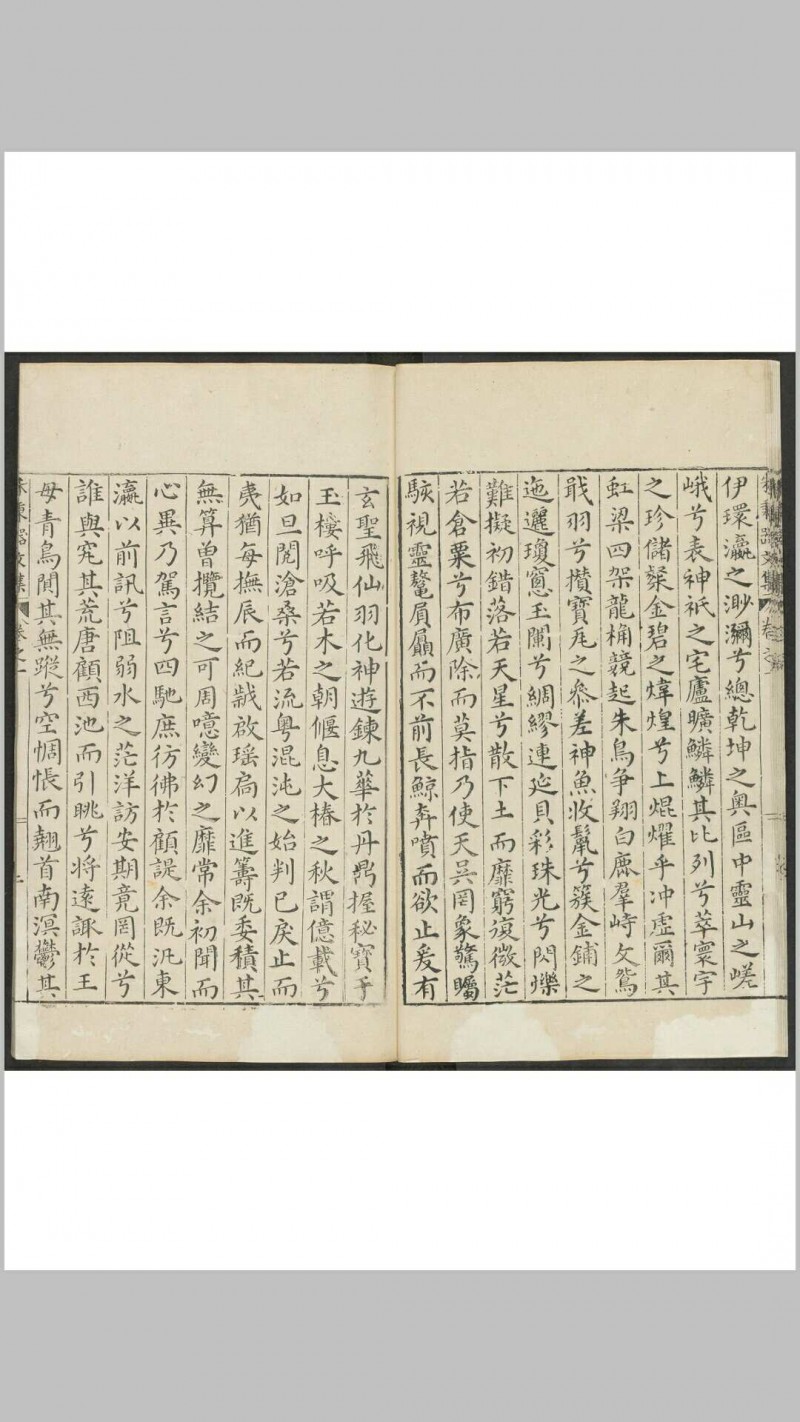 伊環瀛之渺瀰兮總乾坤之奧區中靈山之嵯
峨兮表神祇之宅廬曠鱗鱗其比列兮萃寰宇
之珍儲粲金碧之煒煌兮上焜燿乎冲虛爾其
虹梁四架龍桷競起朱鳥争翔白鹿羣峙文鴛
戢羽兮攢寶瓦之參差神魚收鬣兮簇金鋪之
迤邐瓊窻玉闌兮綢繆連延貝彩珠光兮閃爍
難擬初錯落若天星兮散下土而靡窮復微茫
若倉粟兮布廣除而莫指乃使天吳罔象驚矚
駭視靈鼇屓贔而不前長鯨奔噴而欲止爰有
玄聖飛仙羽化神遊鍊九華於丹鼎握秘寶乎
玉樓呼吸若木之朝偃息大椿之秋謂億載兮
如旦閱滄桑兮若流粤混沌之始判已戾止而
夷猶每撫辰而紀歲啟瑶扃以進籌既委積其
無算曾攬結之可周噫變幻之靡常余初聞而
心異乃駕言兮四馳庶彷彿於顧諟余既汎東
瀛以前訊兮阻弱水之茫洋訪安期竟罔從兮
誰與究其荒唐顧西池而引眺兮將遠諏於王
母青鳥閴其無蹤兮空惆悵而翹首南溟鬱其
朱東谿文集 卷之一